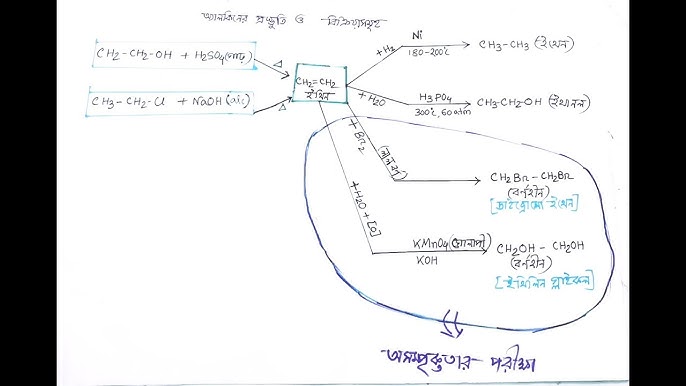 অ্যালকিনের প্রস্তুতি ও বিক্রিয়াসমূহ
CH2-CH2-OH + H2SO4(গাঢ়)
Δ
CH3-CH2-Cl + NaOH(alc)
Δ
CH2=CH2
ইথিন
+H2
Ni
180-200℃
CH3-CH3 (ইথেন)
+H2O
H3PO4
300℃, 60 atm
CH3-CH2-OH (ইথানল)
+Br2
(লাল বর্ণ)
CH2Br - CH2Br
(বর্ণহীন)
[ডাইব্রোমো ইথেন]
+H2O + [O]
KMnO4 (গোলাপী)
KOH
CH2OH - CH2OH
(বর্ণহীন)
[ইথিলিন গ্লাইকল]
অসম্পৃক্ততার পরীক্ষা